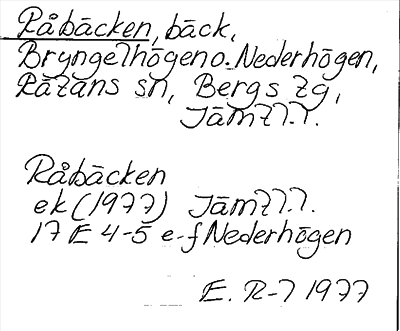 Råbäcken, bäck,
Bryngelhögen o. Nederhögen,
Rätans sn, Bergs tg,
Jämtl.
Råbäcken
ek (1977) Jämtl.
17 E 4-5 e-f Nederhögen
E. R-l 1977